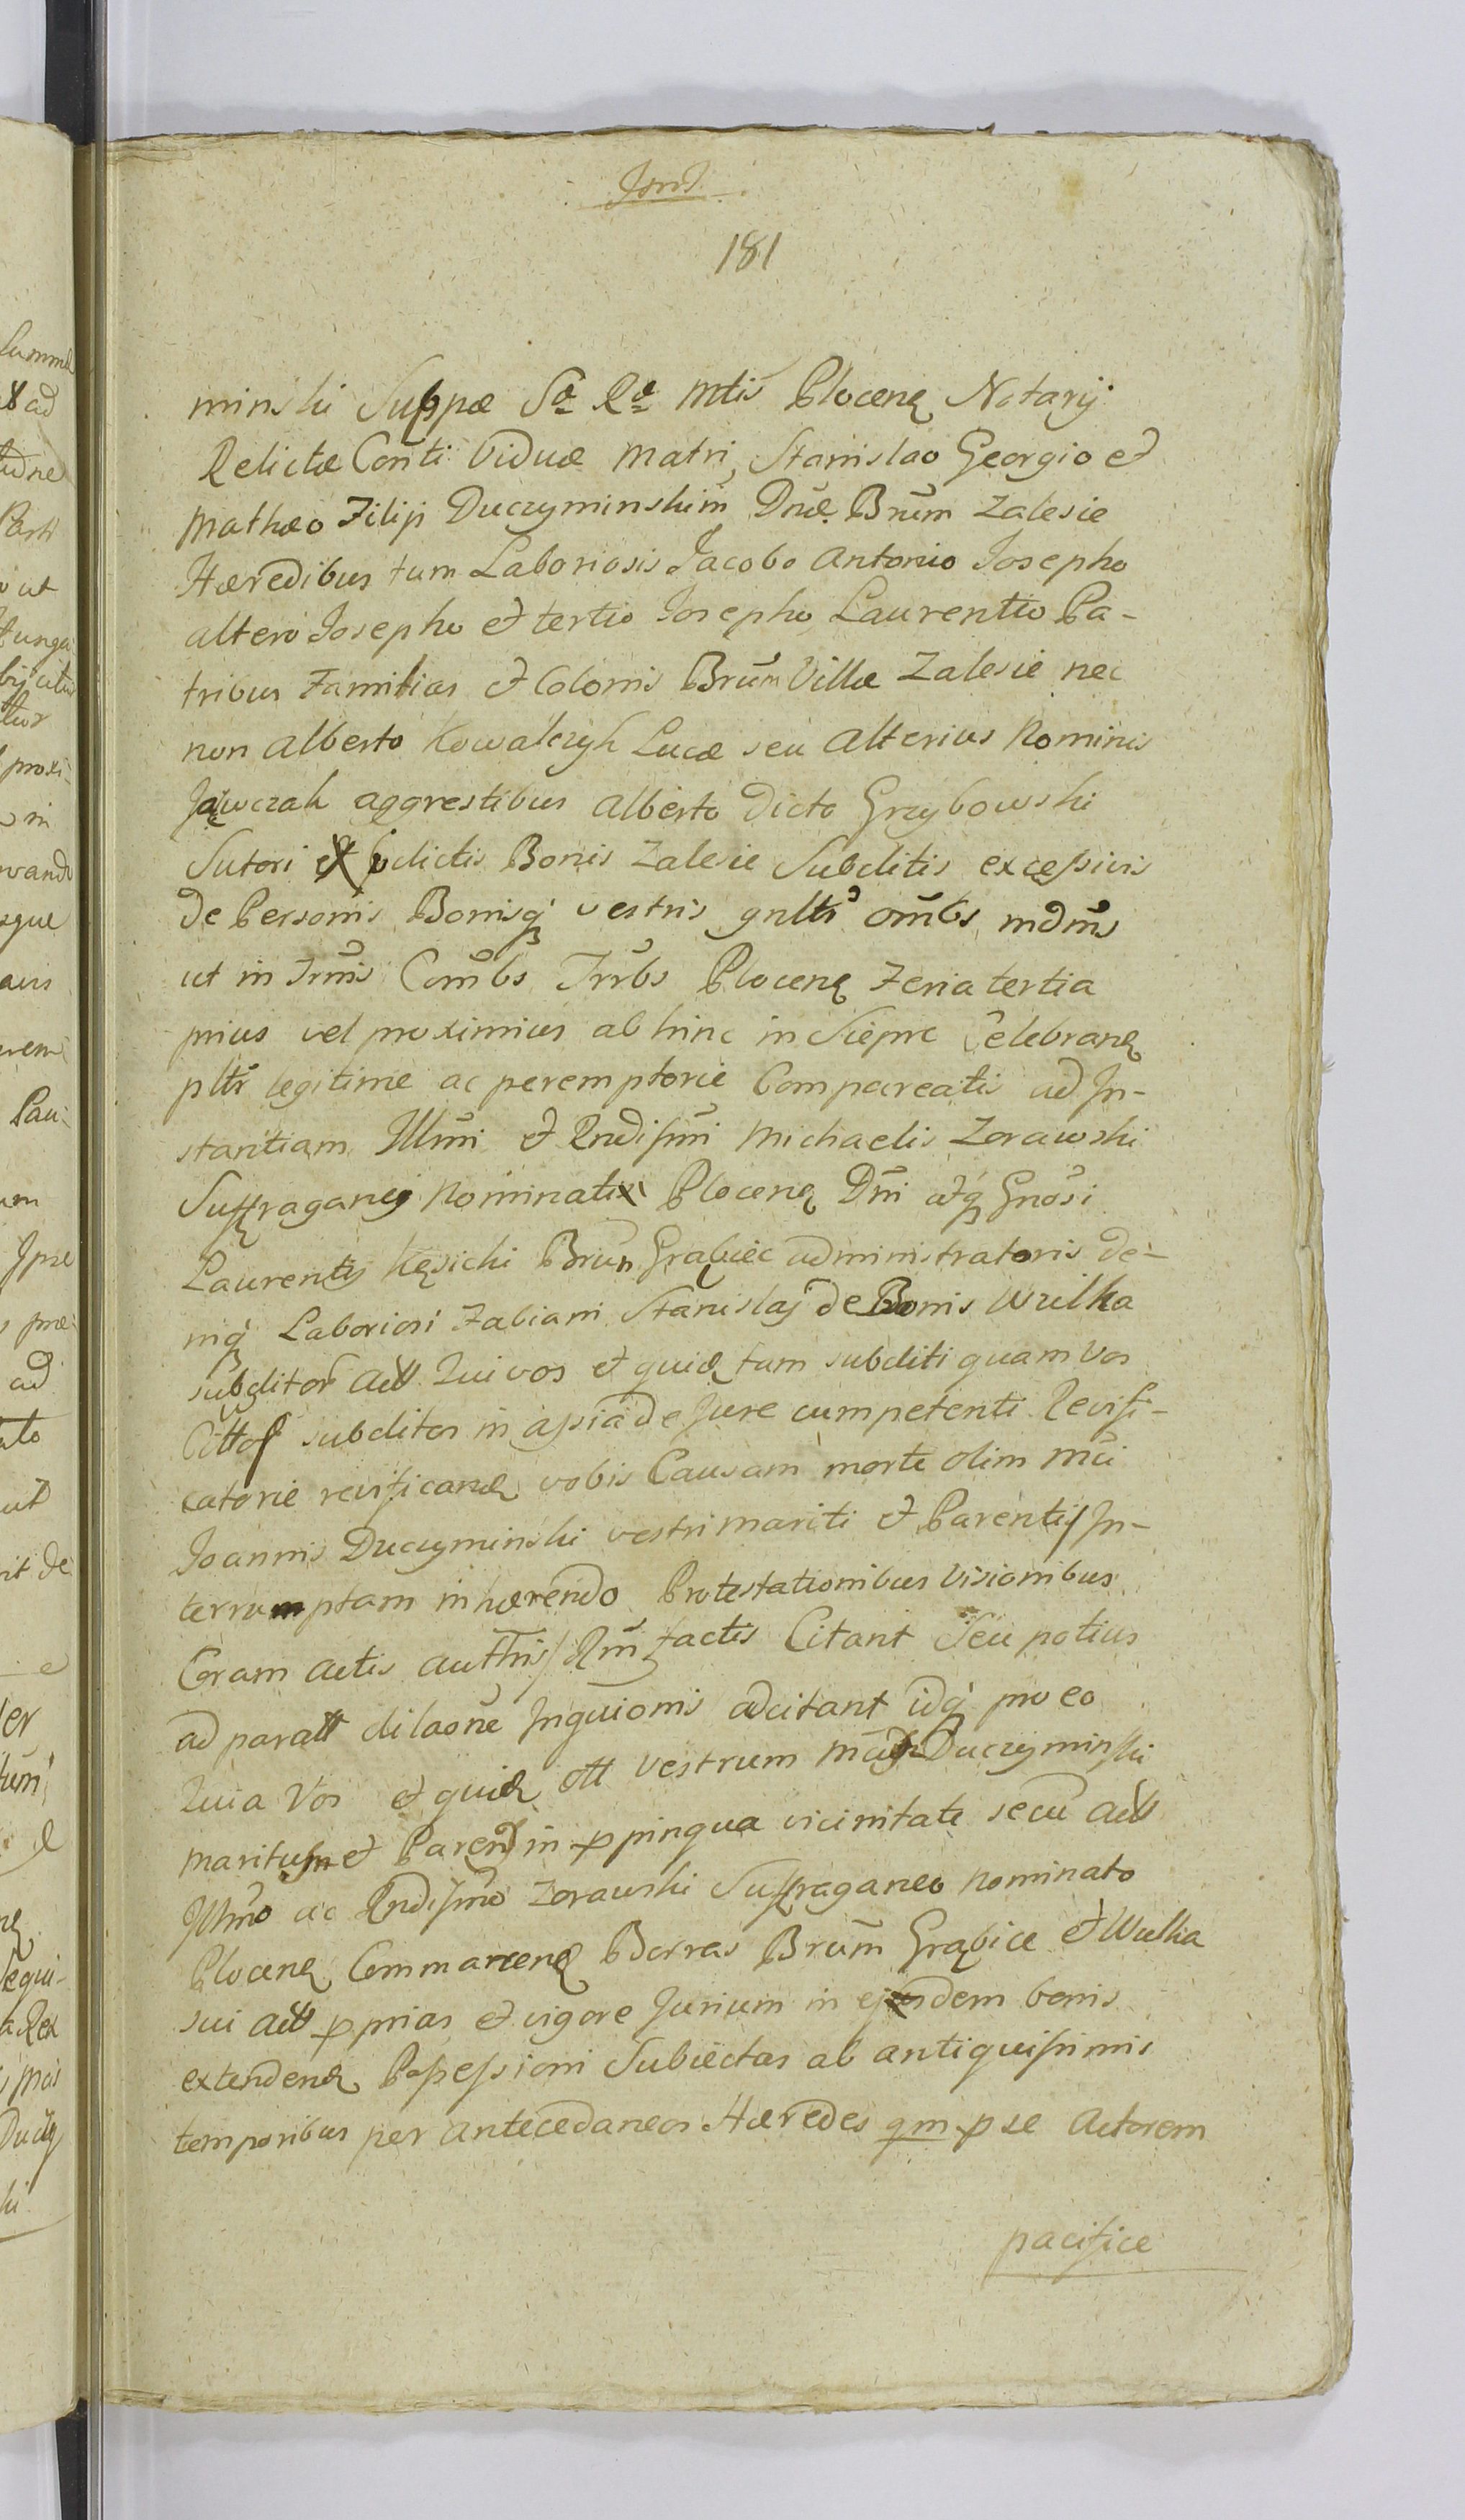 181
minski Suppæ Sæ Ræ Mtis Plocenę Notarij
Relictæ Conti Viduæ Matri, Stanislao Georgio et
Mathæo Filijs Duczyminskim Dnæ Brum Zalesie
Hæredibus tum Laboriosis Jacobo Antonio Josepho
altero Josepho et tertio Josepho, Laurentio Pa-
tribus Familias et Colonis Brum Villæ Zalesie nec
non Alberto Kowalczyk Lucæ seu Alterius Nominis
Jawczak aggrestibus Alberto dicto Grzybowski
Sutori dictis Bonis Zalesie Subditis excessivis
de Personis Bonisq vestris gnltr ombs mdms
ut in Trmis Combs Trrbs Plocenę Feria tertia
prius vel proximius ab hinc in Sieprc Celebranę
pltr legitime ac peremptorie Compareatis ad In-
stantiam Illmi et Rndissmi Michaelis Zorawski
Suffraganej Nominati Plocenę Dni atq Gnosi
Laurentij Kęsicki Brum Grąbiec administratoris de-
niq Laboriosi Fabiani Stanislaj de Bonis Wulka
subditor Act Qui vos et quidę tam subditi quam vos
Cittos subditos in assiã de Jure competenti Revifi-
catorie revificandę vobis Causam morte olim Mci
Joannis Duczyminski vestri mariti et Parentis In-
terrumptam inhærendo Protestationibus Visionibus
Coram actis authtis Rm factis Citant Seu potius
ad paratt dilaone Inquionis adcitant idq pro eo
Quia Vos et quidę ott vestrum Duczyminski
maritum et Parent in ppinqua vicinitate secu Act
Illmo ac Rndissmo Zorawski Suffraganeo nominato
Plocenę Commanenę Borras Brum Grąbice et Wulka
sui Act pprias et vigore Jurium in ejusdem bonis
extendenę Possessioni Subiectas ab antiquissimis
temporibus per Antecedaneos Hæredes qm p se Actorem
pacifice